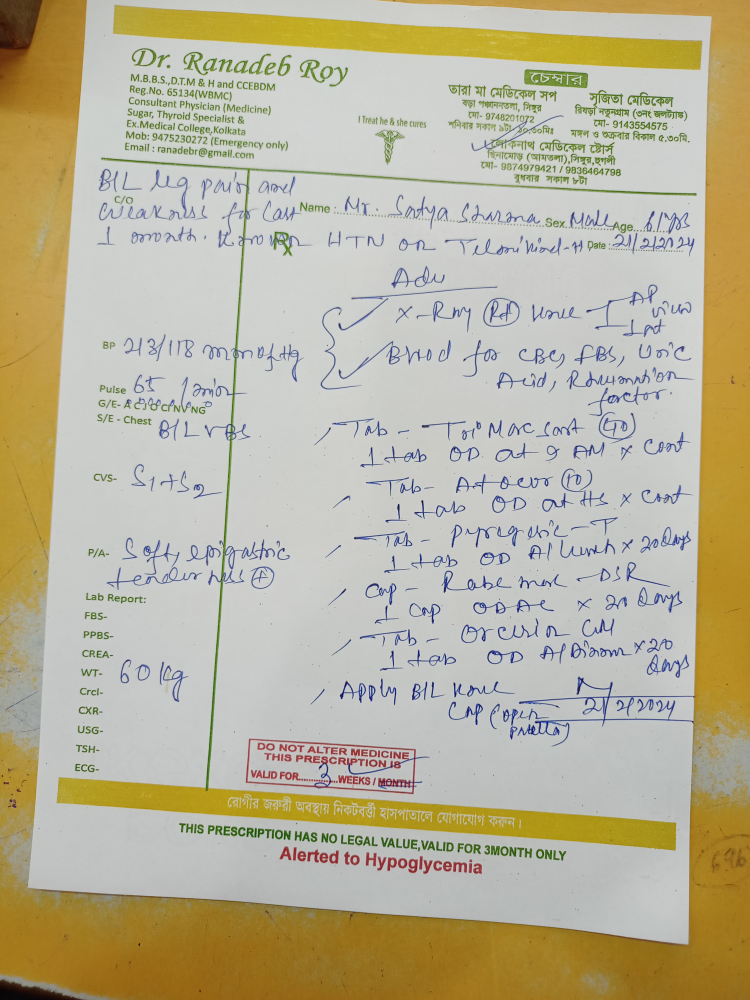 Dr. Ranadeb Roy
M.B.B.S.,D.T.M & H and CCEBDM
Reg.No. 65134(WBMC)
Consultant Physician (Medicine)
Sugar, Thyroid Specialist &
Ex.Medical College,Kolkata
Mob: 9475230272 (Emergency only)
Email : ranadebr@gmail.com
I Treat he & she cures
চেম্বার
তারা মা মেডিকেল সপ
বড়া পঞ্চাননতলা, সিঙ্গুর
মো- 9748201072
শনিবার সকাল ৯টা
সৃজিতা মেডিকেল
রিষড়া নতুনগ্রাম (৩নং জলট্যাঙ্ক)
মো- 9143554575
মঙ্গল ও শুক্রবার বিকাল ৫.৩০মি.
লোকনাথ মেডিকেল ষ্টোর্স
ছিনামোড় (আমতলা),সিঙ্গুর,হুগলী
মো- 9874979421 / 9836464798
বুধবার সকাল ৮টা
B/L leg pain and
C/O
weakness for last
1 month.
Name : Mr. Satya Sharma Sex Male Age 61yrs
Rx HTN on Date : 21/2/2024
Adv
X-Ray Rt knee AP
view
Lat
BP 213/118 mm of Hg
Blood for CBC, FBS, Uric
Acid, Rheumation
factor.
Pulse 65 /min
G/E-
S/E - Chest B/L VBS
Tab - 40
1 tab OD at 9 AM x Cont
CVS- S1+S2
Tab- 10
1 tab OD at HS x Cont
Tab - T
1 tab OD A/Lunch x 20 Days
P/A- Soft, epigastric
tenderness +
Cap - DSR
1 Cap OD AC x 20 Days
Tab - CM
1 tab OD A/Dinner x 20
days
Lab Report:
FBS-
PPBS-
CREA-
WT- 60 Kg
Crcl-
CXR-
USG-
TSH-
ECG-
Apply B/L knee
Cap (open
21/2/2024
DO NOT ALTER MEDICINE
THIS PRESCRIPTION IS
VALID FOR 3 WEEKS / MONTH
রোগীর জরুরী অবস্থায় নিকটবর্ত্তী হাসপাতালে যোগাযোগ করুন।
THIS PRESCRIPTION HAS NO LEGAL VALUE,VALID FOR 3MONTH ONLY
Alerted to Hypoglycemia